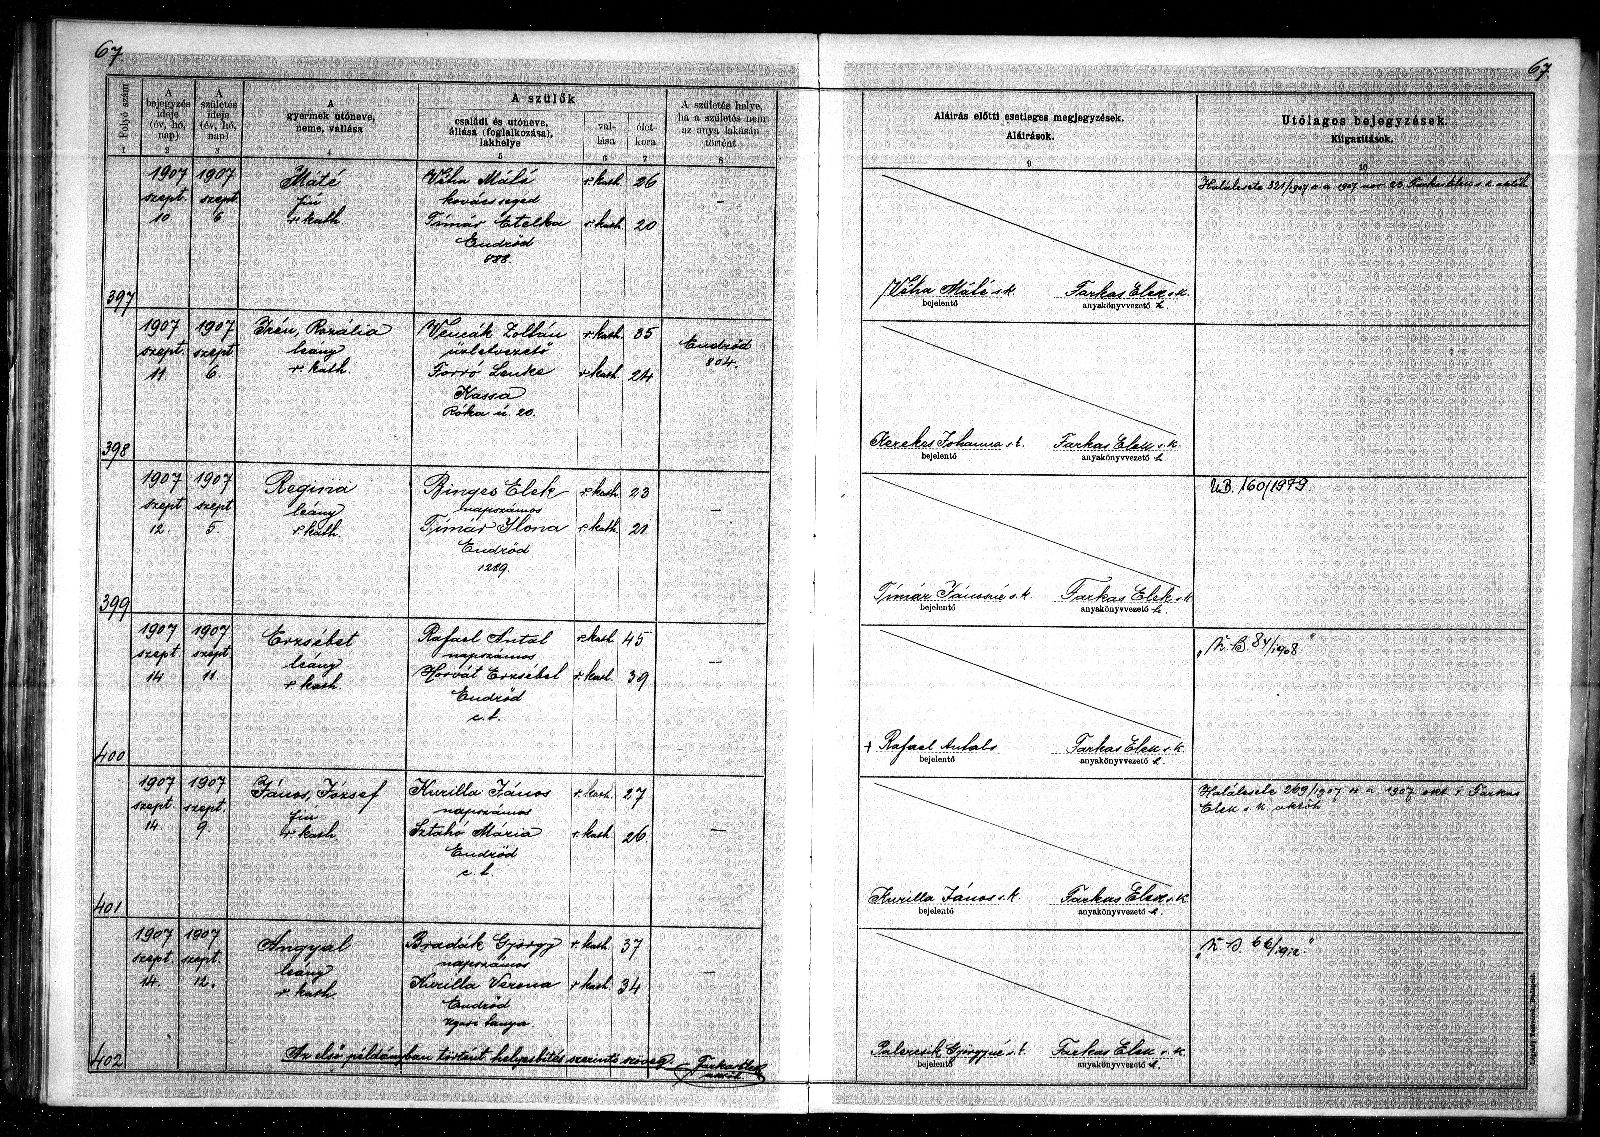 67
67
Folyó szám
A bejegyzés ideje (év, hó, nap)
A születés ideje (év, hó, nap)
A gyermek utóneve, neme, vallása
A szülők
családi és utóneve, állása (foglalkozása), lakhelye
val- lása
élet- kora
A születés helye, ha a születés nem az anya lakásán történt
Aláírás előtti esetleges megjegyzések.
Aláírások.
Utólagos bejegyzések.
Kiigazítások.
1 2 3 4 5 6 7 8 9 10
397
1907 szept. 10
1907 szept. 6
Máté
fiú
r. kath
Véha Máté r. kath. 26
kovács segéd
Tímár Etelka r. kath. 20
Endrőd
—
Véha Máté s. k.
bejelentő
Farkas Elek s. k.
anyakönyvvezető h.
Halálesete 321/1907 a. a. 1907 nov 25
398
1907 szept. 11
1907 szept. 6.
Irén, Rozália
leány
r. kath.
Vencák Zoltán r. kath. 35
üzletvezető
Forró Lenke r. kath. 24
Kassa
Róka u. 20.
Endrőd
804.
Kerekes Johanna s. k.
bejelentő
Farkas Elek s. k.
anyakönyvvezető h.
399
1907 szept. 12.
1907 szept. 5.
Regina
leány
r. kath.
Binges Elek r. kath. 23
napszámos
Tímár Ilona r. kath. 21
Endrőd
1289.
—
Tímár Jánosné s. k.
bejelentő
Farkas Elek s. k.
anyakönyvvezető h.
U.B. 160/1979.
400
1907 szept. 14
1907 szept. 11.
Erzsébet
leány
r. kath.
Rafael Antal r. kath. 45
napszámos
Horvát Erzsébet r. kath. 39
Endrőd
c. t.
—
+ Rafael Antal
bejelentő
Farkas Elek s. k.
anyakönyvvezető h.
401
1907 szept. 14.
1907 szept. 9.
János, József
fiú
r. kath.
Kurilla János r. kath. 27
napszámos
Sztahó Mária r. kath. 26
Endrőd
c. t.
—
Kurilla János s. k.
bejelentő
Farkas Elek s. k.
anyakönyvvezető h.
Halálesete 269/1907 a. a. 1907 okt 1. Farkas
Elek s. k.
402
1907 szept. 14.
1907 szept. 12.
Angyal
leány
r. kath.
Bradák György r. kath. 37
napszámos
Kurilla Verona r. kath. 34
Endrőd
tanya.
—
Az első példányban történt helyesbítés szerinti szöveg.
Farkas Elek
Palercsik Györgyné s. k.
bejelentő
Farkas Elek s. k.
anyakönyvvezető h.